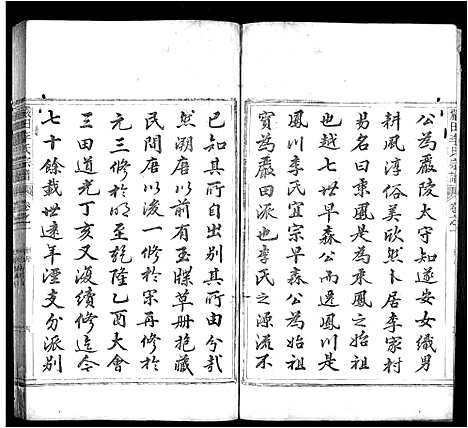 公為嚴陵太守知遂安女織男
耕風淳俗美欣然卜居李家村
易名曰秉鳳是為秉鳳之始祖
也越七世早森公而遷鳳川是
鳳川李氏宜宗早森公為始祖
實為嚴田派也李氏之源流不
已知其所自出別其所由分哉
然溯唐以前有玉牒草册抱藏
民間唐以後一修於宋再修於
元三修於明至乾隆乙酉大會
三田道光丁亥又復續修迄今
七十餘載世遠年湮支分派別
嚴田李氏宗譜 卷之一
嚴田李氏宗譜 卷之一